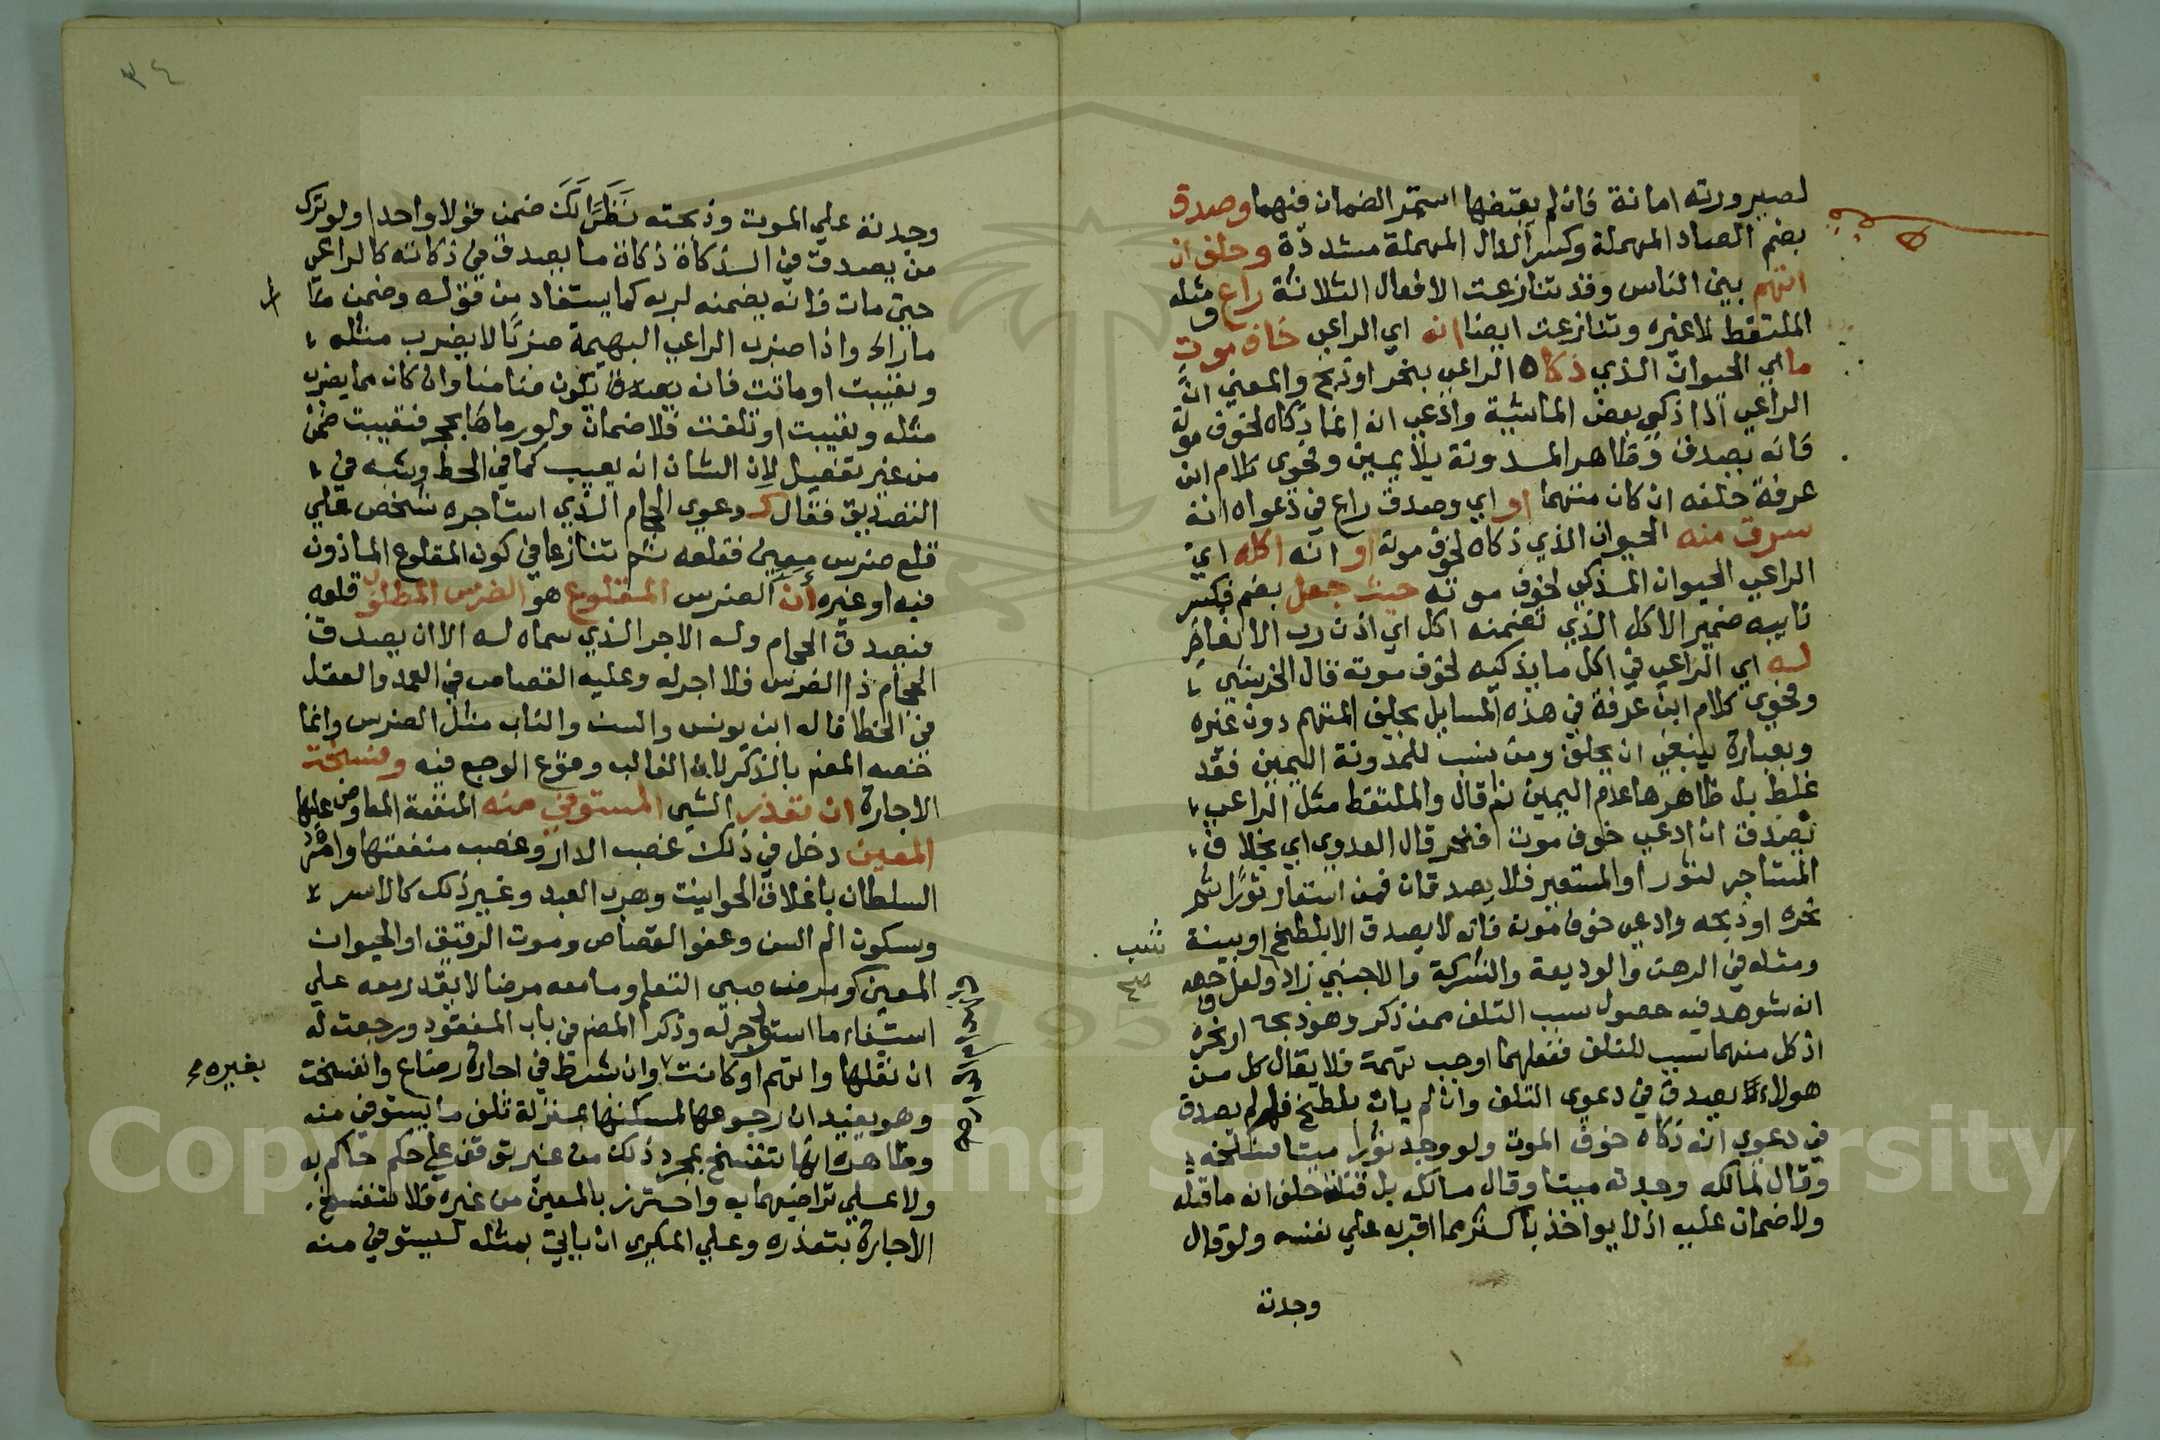 لصيرورته امانة فان لم يقبضها استمر الضمان فيهما وصدق
بضم الصاد المهملة وكسر الدال المهملة مشددة وحلف ان
اتهم بين الناس وقد تنازعت الافعال الثلاثة راع ومثله
الملتقط لا غيره وتنازعت ايضا انه اي الراعي خاف موت
ما اي الحيوان الذي ذكاه الراعي بنحر او ذبح والمعني ان
الراعي اذا ذكي بعض الماشية وادعي انه انما ذكاه لخوف موته
فانه يصدق وظاهر المدونة بلا يمين وفحوي كلام ابن
عرفة حلفه ان كان متهما او اي وصدق راع في دعواه انه
سرق منه الحيوان الذي ذكاه لخوف موته او انه اكله اي
الراعي الحيوان المذكي لخوف موته حيث جعل بضم فكسر
نايبه ضمير الاكل الذي تضمنه اكل اي اذن رب الانعام
له اي الراعي في اكل ما يذكيه لخوف موته قال الخرشي
وفحوي كلام ابن عرفة في هذه المسايل يحلف المتهم دون غيره
وبعبارة ينبغي ان يحلف ومن نسب للمدونة اليمين فقد
غلط بل ظاهرها عدم اليمين ثم قال والملتقط مثل الراعي
يصدق ان ادعي خوف موت فنحر قال العدوي اي بخلاف
المستاجر لثور او المستعير فلا يصدقان فمن استعار ثورا ثم
نحره او ذبحه وادعي خوف موته فانه لا يصدق الا بلطخ او بينة
ومثله في الرهن والوديعة والشركة والاجنبي زاد ولعل وجهه
انه شوهد فيه حصول سبب التلف ممن ذكر وهو ذبحه او نحره
اذ كل منهما سبب للتلف ففعلهما اوجب تهمة فلا يقال كل من
هولاء يصدق في دعوي التلف وان لم يات بلطخ فلم لم يصدق
في دعوي انه ذكاه خوف الموت ولو وجد ثورا ميتا فسلخه
وقال لمالكه وجدته ميتا وقال مالكه بل قتلته حلف انه ما قتله
ولا ضمان عليه اذ لا يواخذ باكثر مما اقر به علي نفسه ولو قال
وجدته
شب
٣٤
وجدته علي الموت وذبحته نظرا لك ضمن قولا واحدا ولو ترك
من يصدق في الذكاة ذكاة ما يصدق في ذكاته كالراعي
حتي مات فانه يضمنه لربه كما يستفاد من قوله وضمن مار
ما راي واذا ضرب الراعي البهيمة ضربا لا يضرب مثله
وتعيبت او ماتت فانه يعد ان يكون ضامنا وان كان مما يضرب
مثله وتعيبت او تلفت فلا ضمان ولو رماها بحجر فتعيبت ضمن
من غير تفصيل لان الشان انه يعيب كما في الحط وشبه في
التصديق فقال كـ دعوي الحجام الذي استاجره شخص علي
قلع ضرس معين فقلعه ثم تنازعا في كون المقلوع الماذون
فيه او غيره أن الضرس المقلوع هو الضرس المطلوب قلعه
فيصدق الحجام وله الاجر الذي سماه له الا ان يصدق
الحجام ذا الضرس فلا اجر له وعليه القصاص في العمد والعقل
في الخطا قاله ابن يونس والسن والناب مثل الضرس وانما
خصه المص بالذكر لان الغالب وقوع الوجع فيه وفسخت
الاجارة ان تعذر الشي المستوفي منه المنفعة المعاوض عليها
المعين دخل في ذلك غصب الدار وغصب منفعتها وامر
السلطان باغلاق الحوانيت وهرب العبد وغير ذلك كالاسر
وسكون الم السن وعفو القصاص وموت الرقيق او الحيوان
المعين كومرض صبي التعلم وما معه مرضا لا يقدر معه علي
استيفاء ما استوجر له وذكر المص في باب المفقود ورجعت له
ان نقلها واتهم او كانت وان شرط في اجارة رضاع وانفسخت
وهو يفيد ان رجوعها لمسكنها بمنزلة تلف ما يستوفي منه
وظاهره انها تنفسخ بمجرد ذلك من غير توقف علي حكم حاكم به
ولا علي تراضيهما به واحترز بالمعين من غيره فلا تنفسخ
الاجارة بتعذره وعلي المكري ان ياتي بمثله ليستوفي منه
بغيره
Copyright © King Saud University